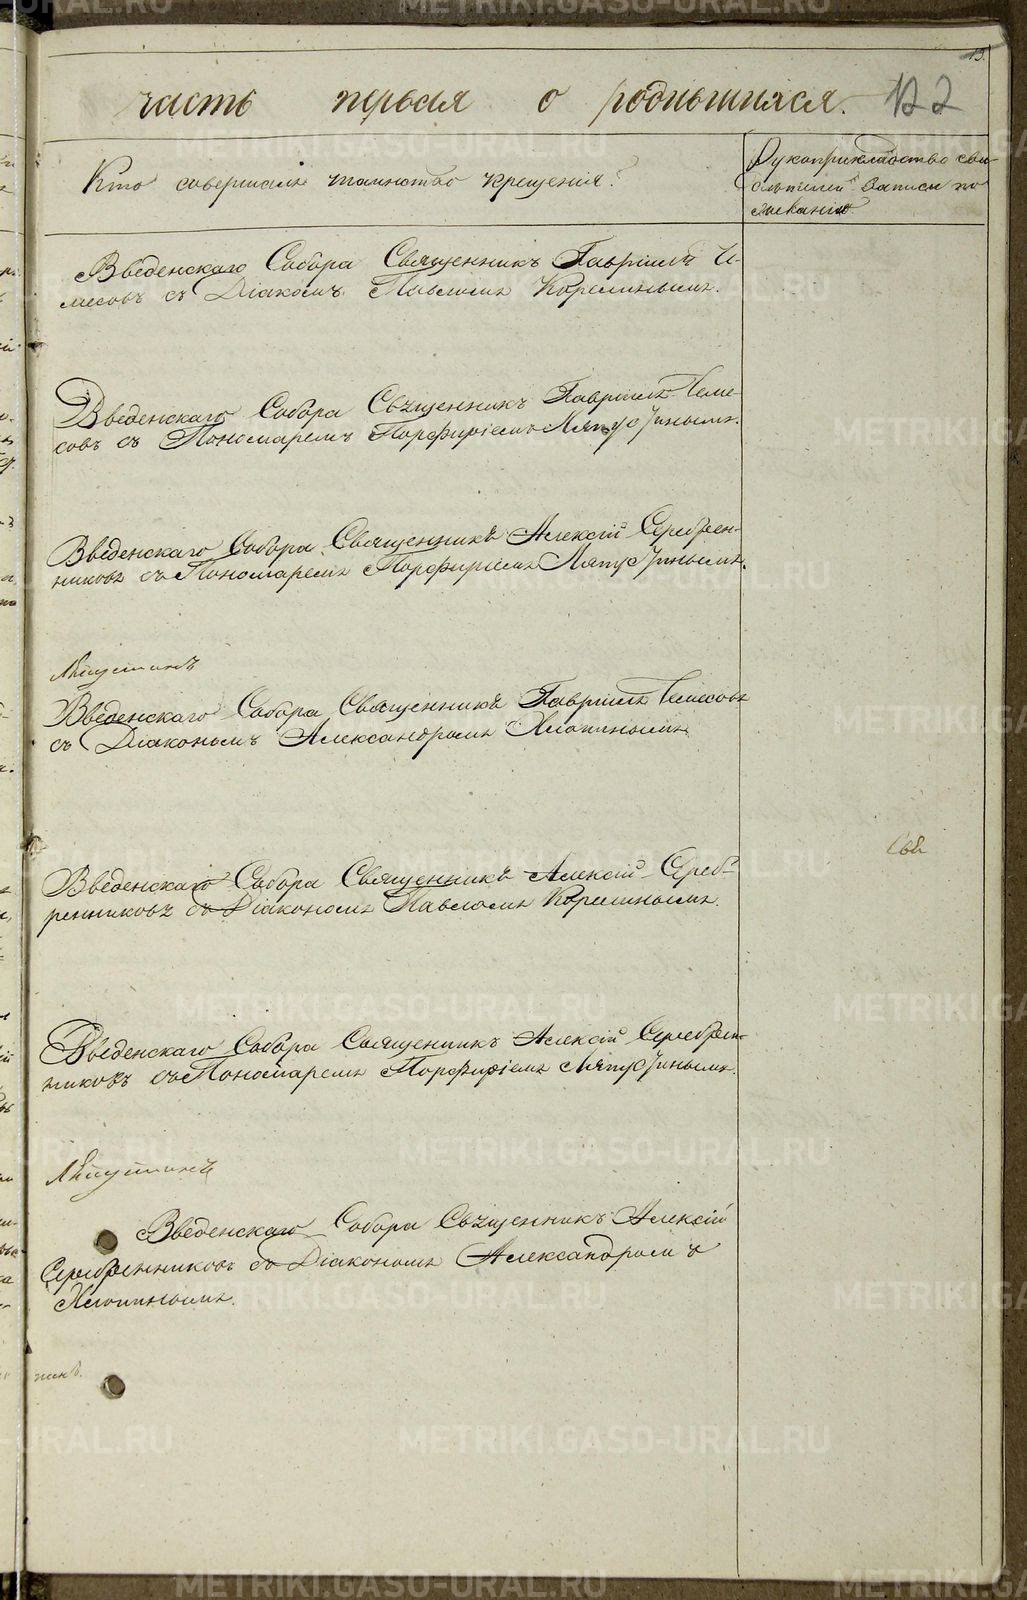 13.
часть первая о родившихся. 122
Кто совершалъ таинство крещения?
Рукоприкладство сви-
дѣтелей записи по
желанію
Введенскаго Собора Священникъ Гавріилъ И-
месовъ съ Діакономъ Павломъ Корелинымъ.
Введенскаго Собора Священникъ Гавріилъ Име-
совъ съ Пономаремъ Порфиріемъ Ляпустинымъ.
Введенскаго Собора Священникъ Алексій Серебрен-
никовъ съ Пономаремъ Порфиріемъ Ляпустинымъ.
Введенскаго Собора Священникъ Гавріилъ Имесовъ
съ Діакономъ Александромъ Хлопинымъ
Введенскаго Собора Священникъ Алексій Сереб-
ренниковъ съ Діакономъ Павломъ Корелинымъ.
Введенскаго Собора Священникъ Алексій Серебрен-
никовъ съ Пономаремъ Порфиріемъ Ляпустинымъ.
Введенскаго Собора Священникъ Алексій
Серебренниковъ съ Діакономъ Александромъ
Хлопинымъ.
METRIKI.GASO-URAL.RU